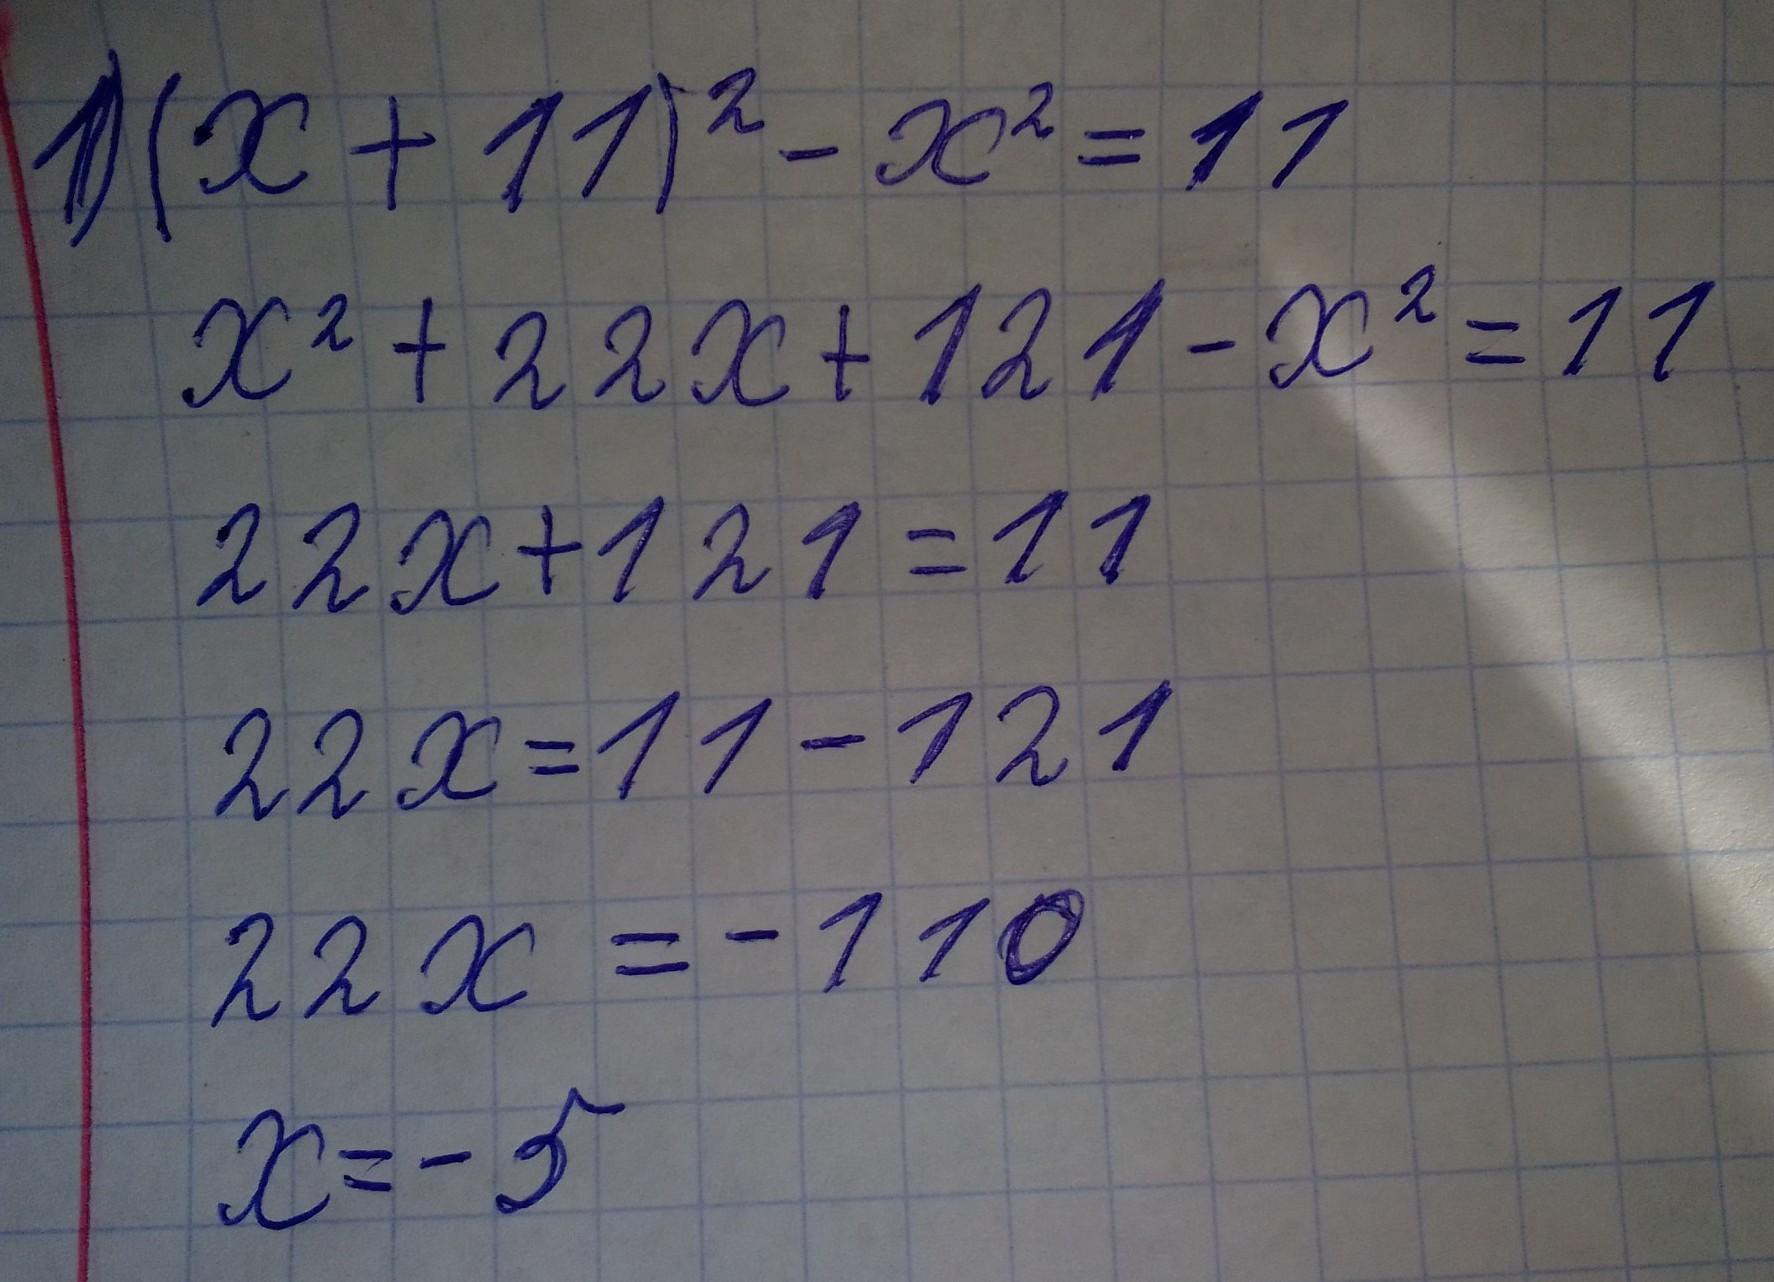 1) (x + 11)² - x² = 11
x² + 22x + 121 - x² = 11
22x + 121 = 11
22x = 11 - 121
22x = -110
x = -5